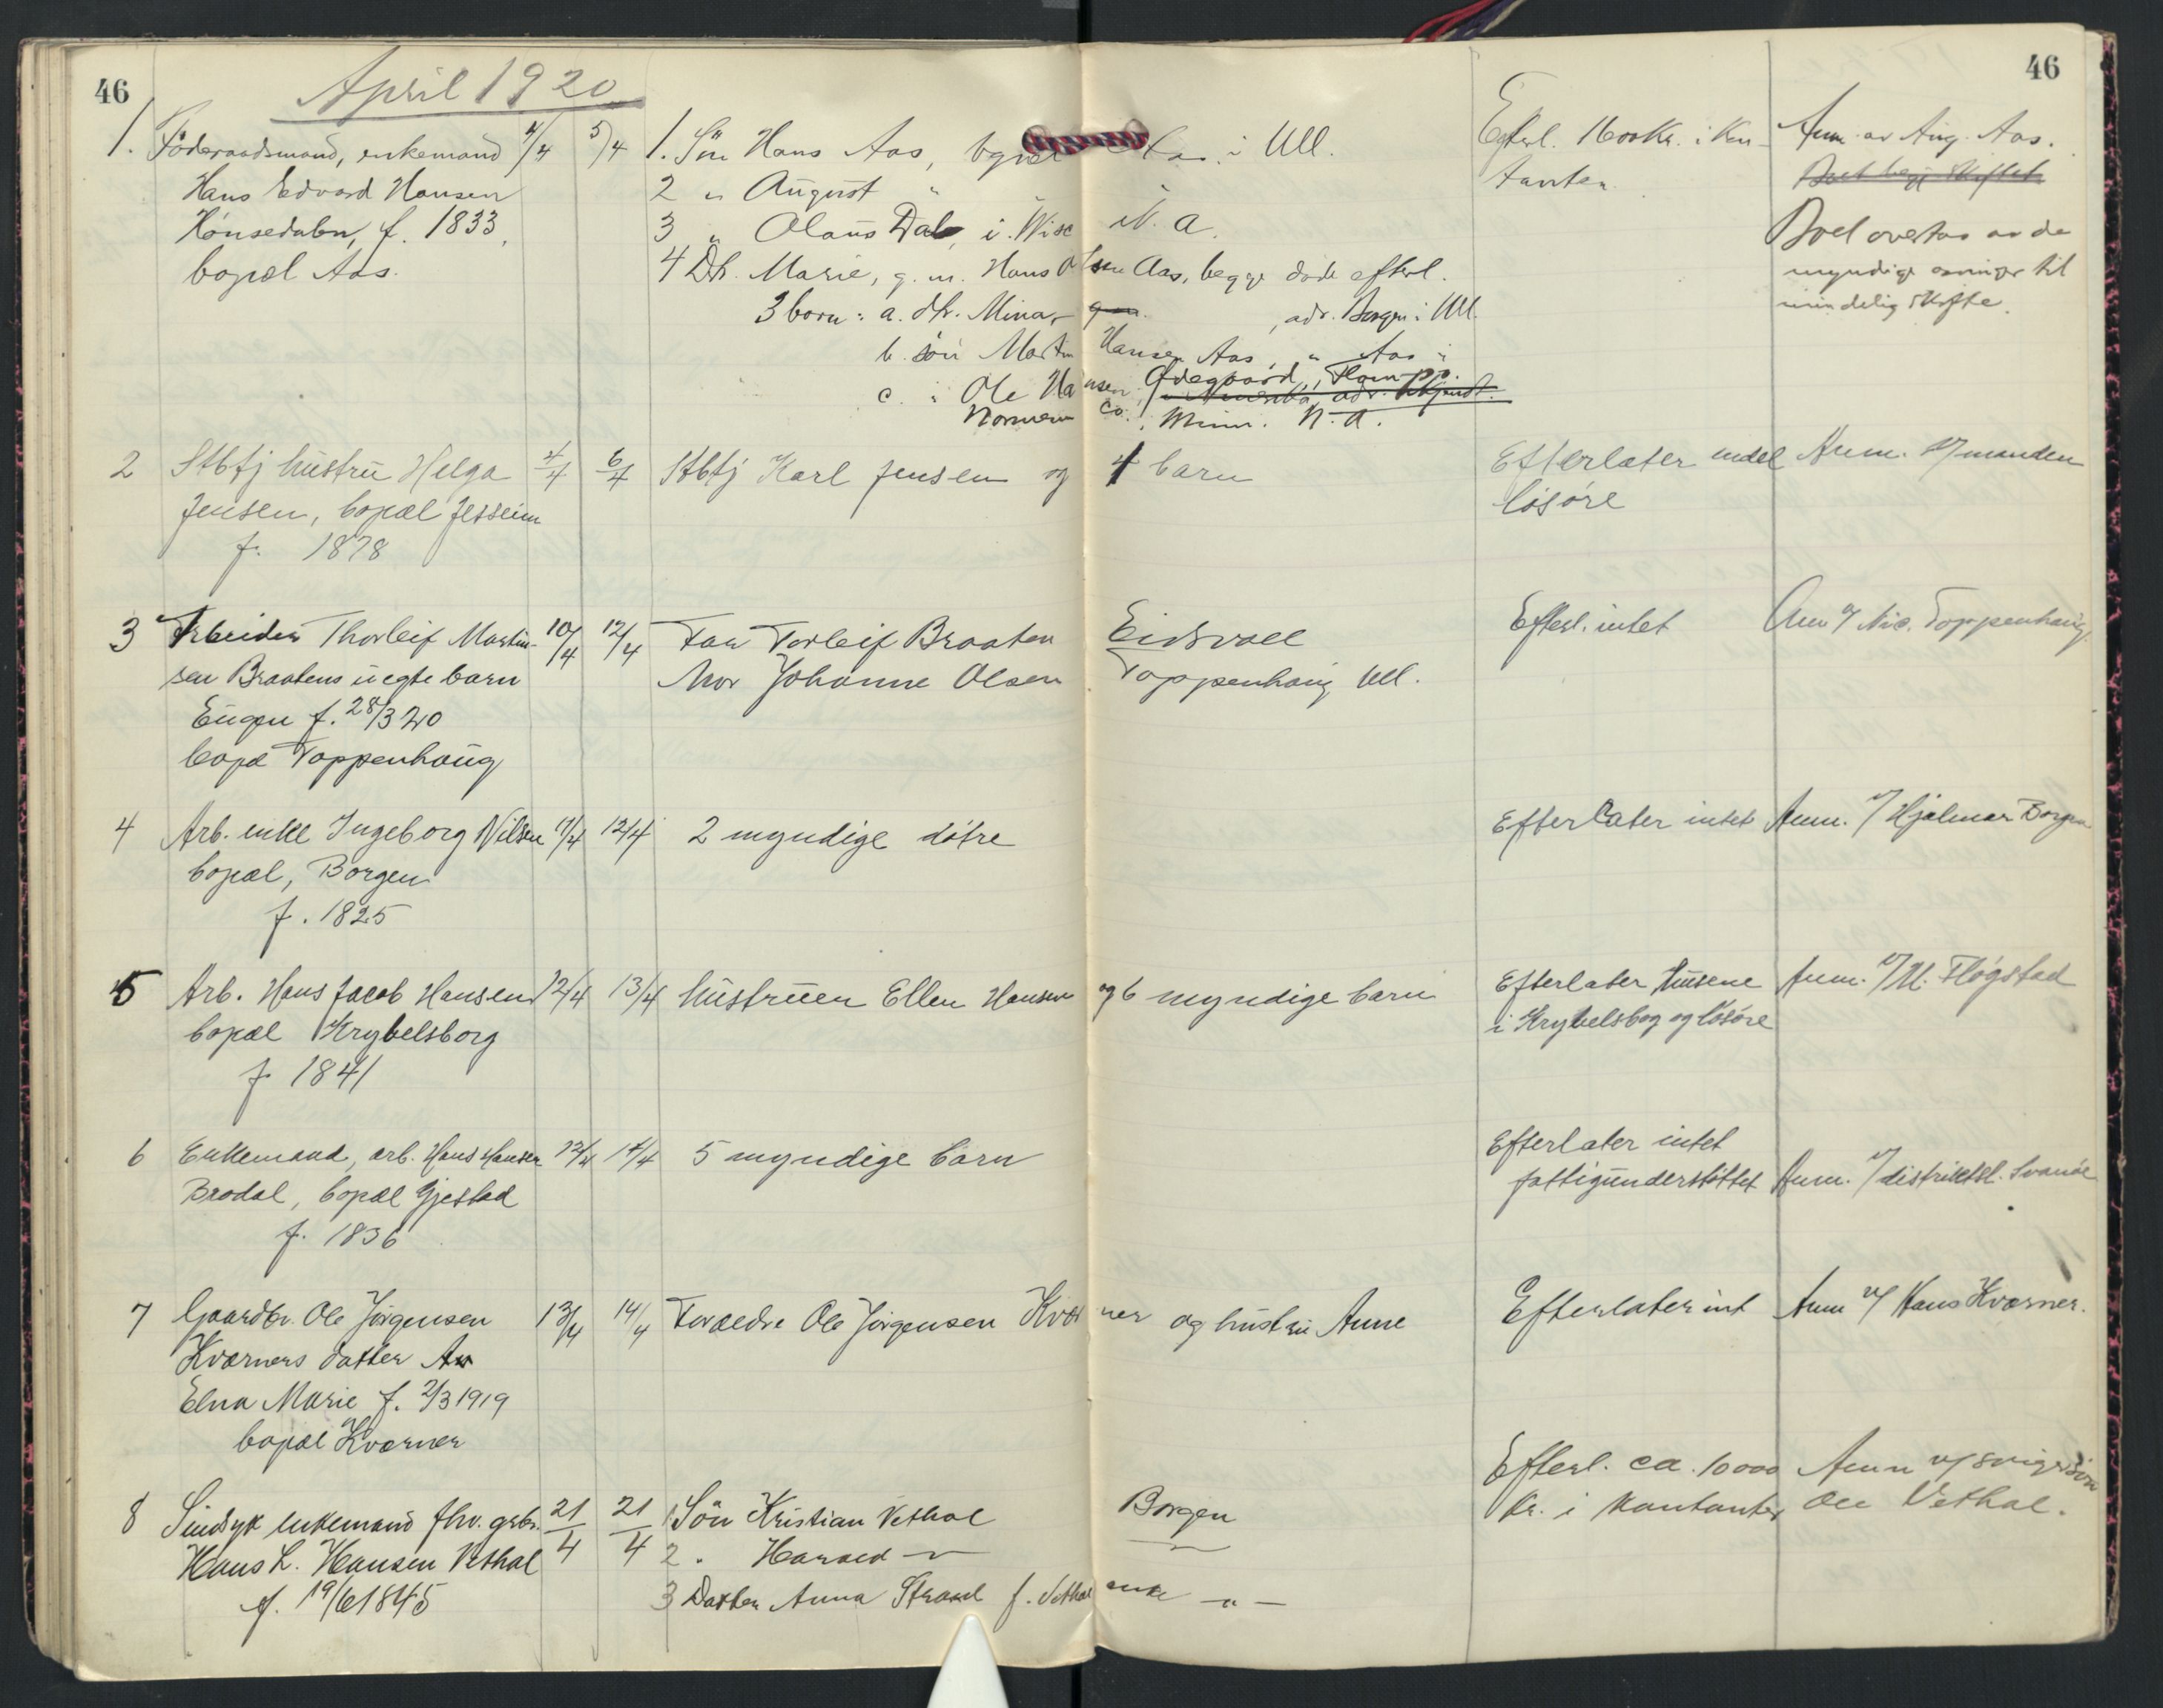 46
46
April 1920
1. Föderaadsmand, enkemand 4/4 5/4 1. Sön Hans Aas, i Ull. Efterl. 1600 Kr. i Kon- Anm. av Aug. Aas.
Hans Edvard Hansen 2 " August " " tanter.
Hönsedalen, f. 1833, 3 " Olaus Dal, i Wisc N. A. Boet overtas av de
bopæl Aas. 4 Dtr. Marie, g. m. Hans Olsen Aas, begge döde efterl. myndige arvinger til
3 born: a. dtr. Mina, adr. Borgen i Ull. mindelig skifte.
b. sön Martin Hansen Aas, " Aas "
c. " Ole Hansen Ødegaard,
i Amerika, adr. ukjendt.
Norman Co., Minn. N. A.
2 Stbtj hustru Helga 4/4 6/4 Stbtj Karl Jensen og 4 barn Efterlater endel Anm. v/ manden
Jensen, bopæl Jessheim lösöre
f. 1878
3 Arbeider Thorleif Martin- 10/4 12/4 Far Torleif Braaten Eidsvoll Efterl. intet Anm v/ Nic. Toppenhaug
sen Braatens uegte barn Mor Johanne Olsen Toppenhaug Ull.
Eugen f. 28/3 20
bopæl Toppenhaug
4 Arb. enke Ingeborg Nilsen 11/4 12/4 2 myndige dötre Efterlater intet Anm. v/ Hjalmar Borgen
bopæl, Borgen
f. 1825
5 Arb. Hans Jacob Hansen 12/4 13/4 hustruen Ellen Hansen og 6 myndige barn Efterlater husene Anm. v/ M. Flögstad
bopæl Krybelsborg i Krybelsbog og lösöre
f 1841
6 Enkemand, arb. Hans Hansen 13/4 14/4 5 myndige barn Efterlater intet
Brodal, bopæl Gjestad fattigunderstöttet Anm. v/ distriktsl. Svanöe
f. 1836
7 Gaardbr. Ole Jörgensen 13/4 14/4 Foraeldre Ole Jörgensen Kværner og hustru Anne Efterlater int Anm v/ Hans Kværner.
Kværners datter
Elna Marie f. 2/3 1919
bopæl Kværner
8 Sindsyk enkemand fhv. grbr. 21/4 21/4 1 Sön Kristian Vethal Borgen Efterl. ca. 10000 Anm v/ svigersön
Hans L. Hansen Vethal 2 " Harald — — kr. i kontanter Ole Vethal.
f. 19/6 1845 3 Datter Anna Strand f. Vethal enke — " —